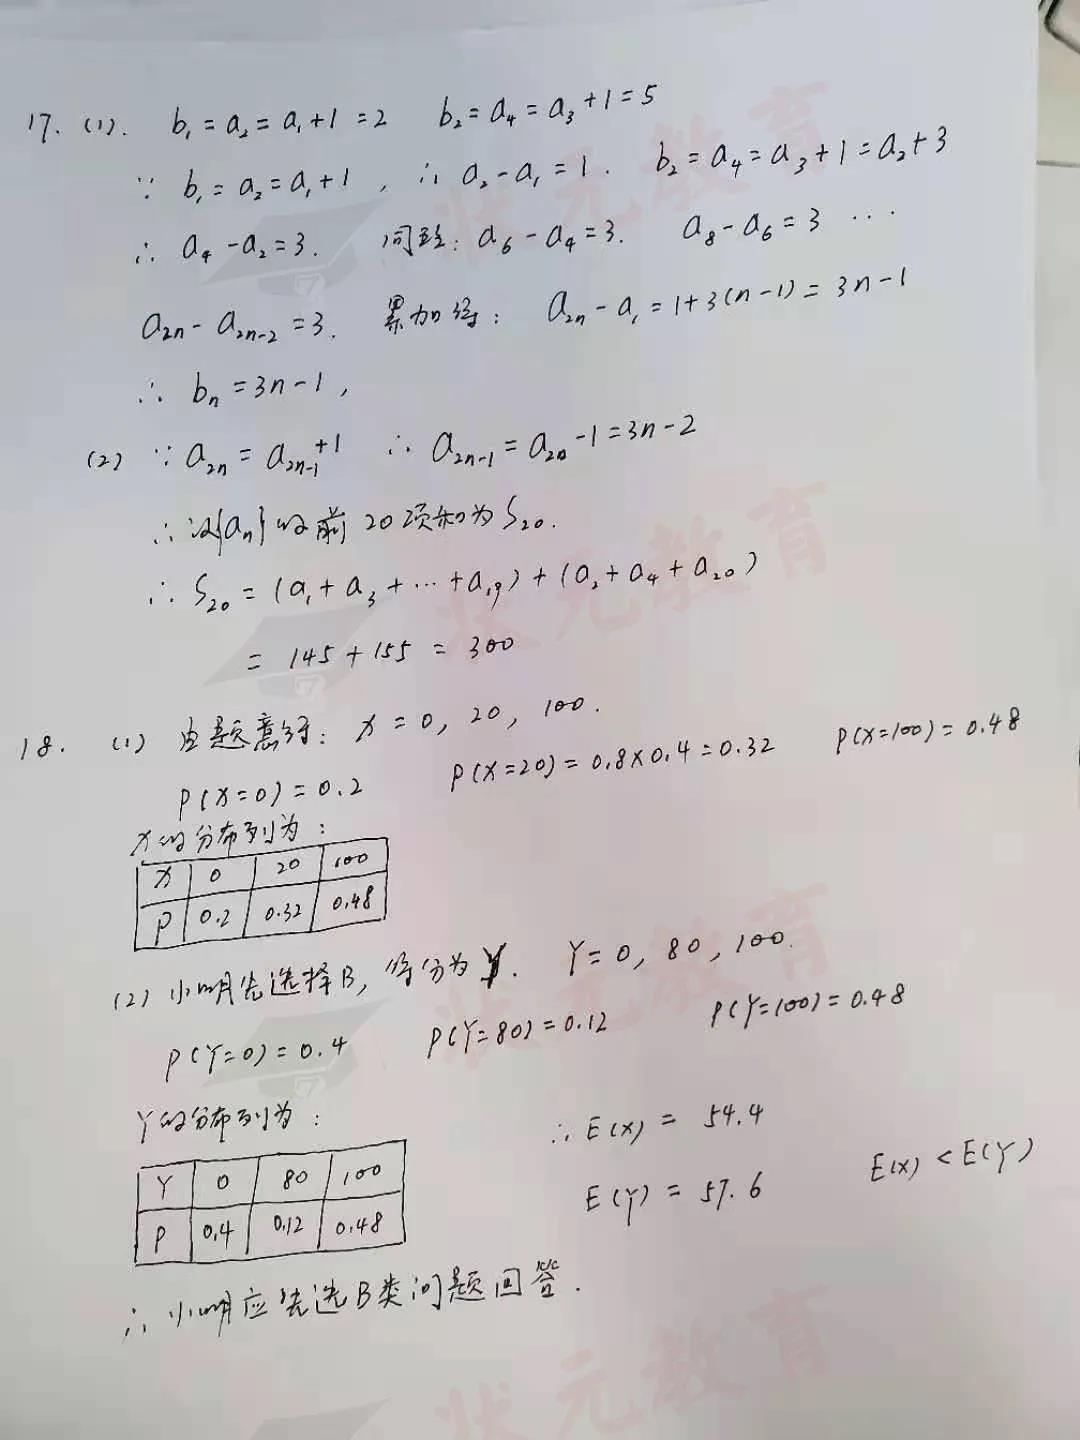 17. (1). b₁=a₂=a₁+1=2 b₂=a₄=a₃+1=5
∵ b₁=a₂=a₁+1, ∴ a₂-a₁=1. b₂=a₄=a₃+1=a₂+3
∴ a₄-a₂=3. 同理: a₆-a₄=3. a₈-a₆=3 ···
a₂ₙ-a₂ₙ₋₂=3. 累加得: a₂ₙ-a₁=1+3(n-1)=3n-1
∴ bₙ=3n-1,
(2) ∵ a₂ₙ=a₂ₙ₋₁+1 ∴ a₂ₙ₋₁=a₂ₙ-1=3n-2
∴ 设{aₙ}的前20项和为S₂₀.
∴ S₂₀=(a₁+a₃+···+a₁₉)+(a₂+a₄+a₂₀)
=145+155=300
18. (1) 由题意得: X=0, 20, 100.
P(X=0)=0.2 P(X=20)=0.8×0.4=0.32 P(X=100)=0.48
X的分布列为:
X 0 20 100
P 0.2 0.32 0.48
(2) 小明先选择B, 得分为Y. Y=0, 80, 100.
P(Y=0)=0.4 P(Y=80)=0.12 P(Y=100)=0.48
Y的分布列为:
Y 0 80 100
P 0.4 0.12 0.48
∴ E(X)=54.4
E(Y)=57.6 E(X)<E(Y)
∴ 小明应先选B类问题回答.
状元教育
状元教育
状元教育
状元教育